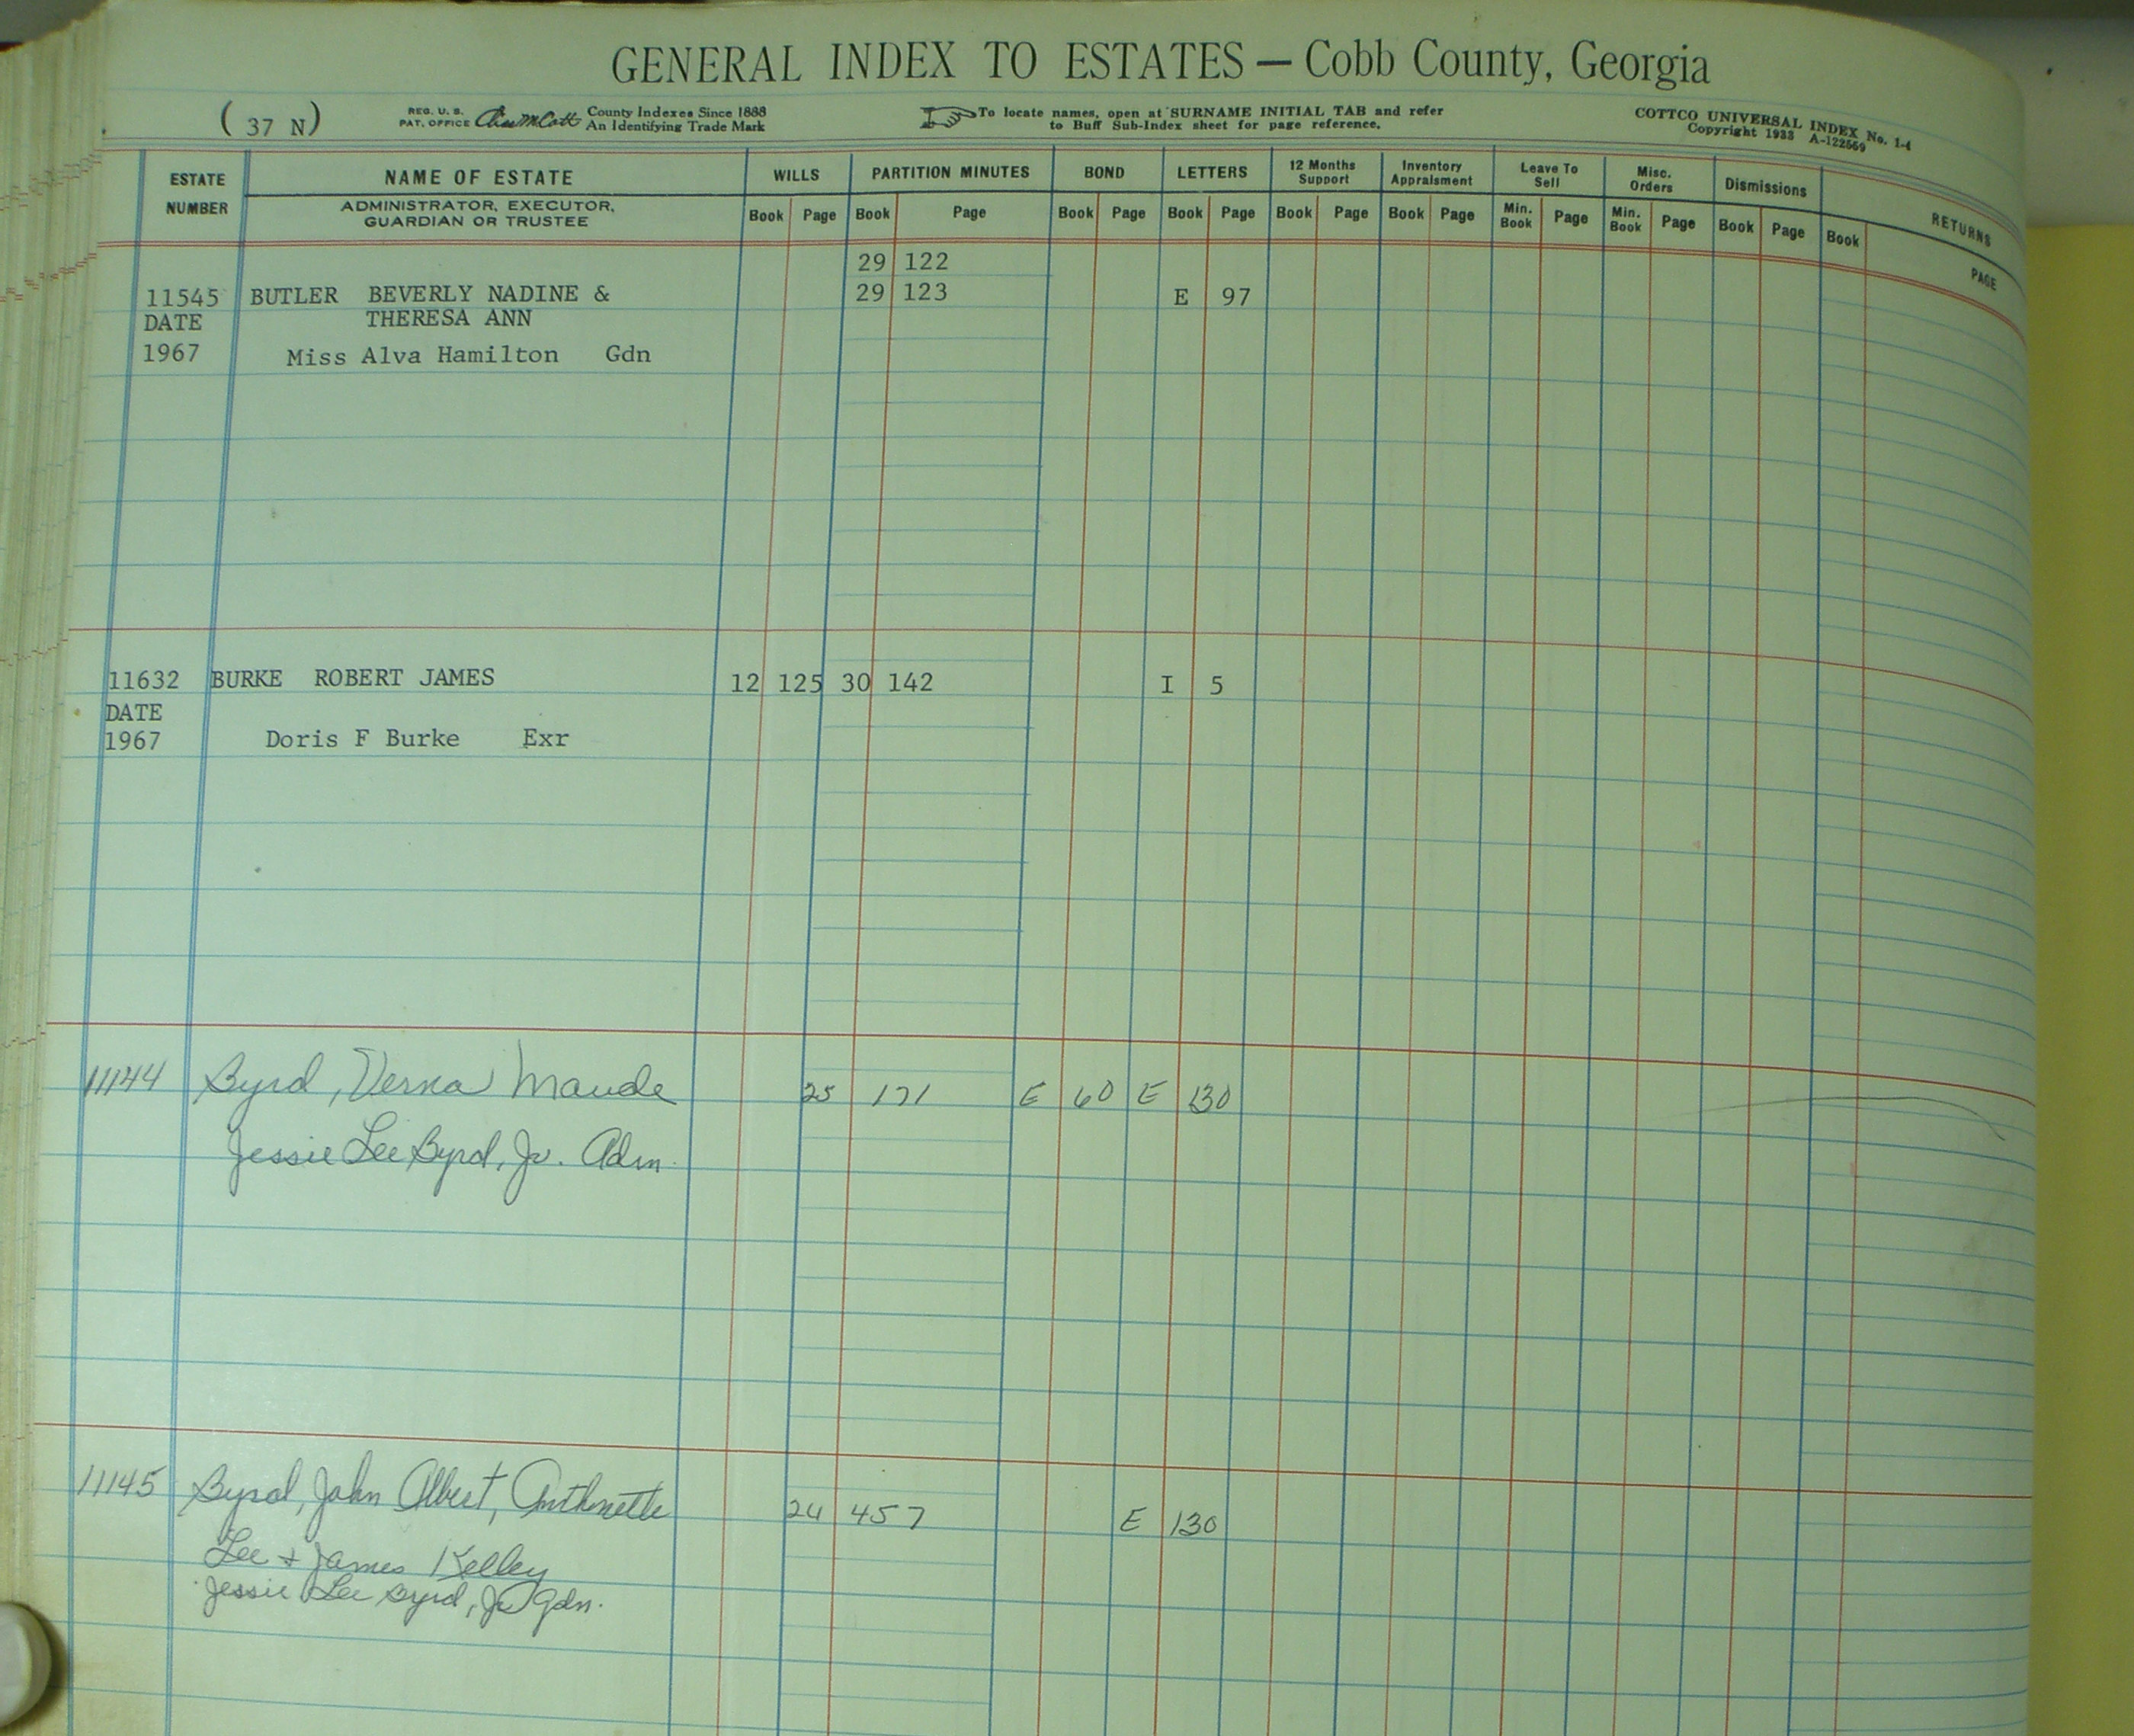 GENERAL INDEX TO ESTATES — Cobb County, Georgia
( 37 N)
REG. U. S. PAT. OFFICE County Indexes Since 1888 An Identifying Trade Mark
To locate names, open at SURNAME INITIAL TAB and refer to Buff Sub-Index sheet for page reference.
COTTCO UNIVERSAL INDEX No. 1-4
Copyright 1933 A-122559
ESTATE NUMBER NAME OF ESTATE WILLS PARTITION MINUTES BOND LETTERS 12 Months Support Inventory Appraisment Leave To Sell Misc. Orders Dismissions RETURNS
ADMINISTRATOR, EXECUTOR, GUARDIAN OR TRUSTEE Book Page Book Page Book Page Book Page Book Page Book Page Min. Book Page Min. Book Page Book Page Book PAGE
29 122
11545 BUTLER BEVERLY NADINE & 29 123 E 97
DATE THERESA ANN
1967 Miss Alva Hamilton Gdn
11632 BURKE ROBERT JAMES 12 125 30 142 I 5
DATE
1967 Doris F Burke Exr
11144 Byrd, Verna Maude 25 171 E 60 E 130
Jessie Lee Byrd, Jr. Adm.
11145 Byrd, John Albert, Anthonette 24 457 E 130
Lee + James Kelley
Jessie Lee Byrd, Jr Gdn.